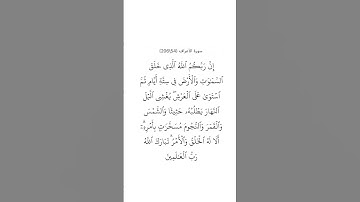 سورة الأعراف (206\54)
إِنَّ رَبَّكُمُ ٱللَّهُ ٱلَّذِى خَلَقَ
ٱلسَّمَٰوَٰتِ وَٱلْأَرْضَ فِى سِتَّةِ أَيَّامٍ ثُمَّ
ٱسْتَوَىٰ عَلَى ٱلْعَرْشِ يُغْشِى ٱلَّيْلَ
ٱلنَّهَارَ يَطْلُبُهُۥ حَثِيثًا وَٱلشَّمْسَ
وَٱلْقَمَرَ وَٱلنُّجُومَ مُسَخَّرَٰتٍۭ بِأَمْرِهِۦٓ ۗ
أَلَا لَهُ ٱلْخَلْقُ وَٱلْأَمْرُ ۗ تَبَارَكَ ٱللَّهُ
رَبُّ ٱلْعَٰلَمِينَ